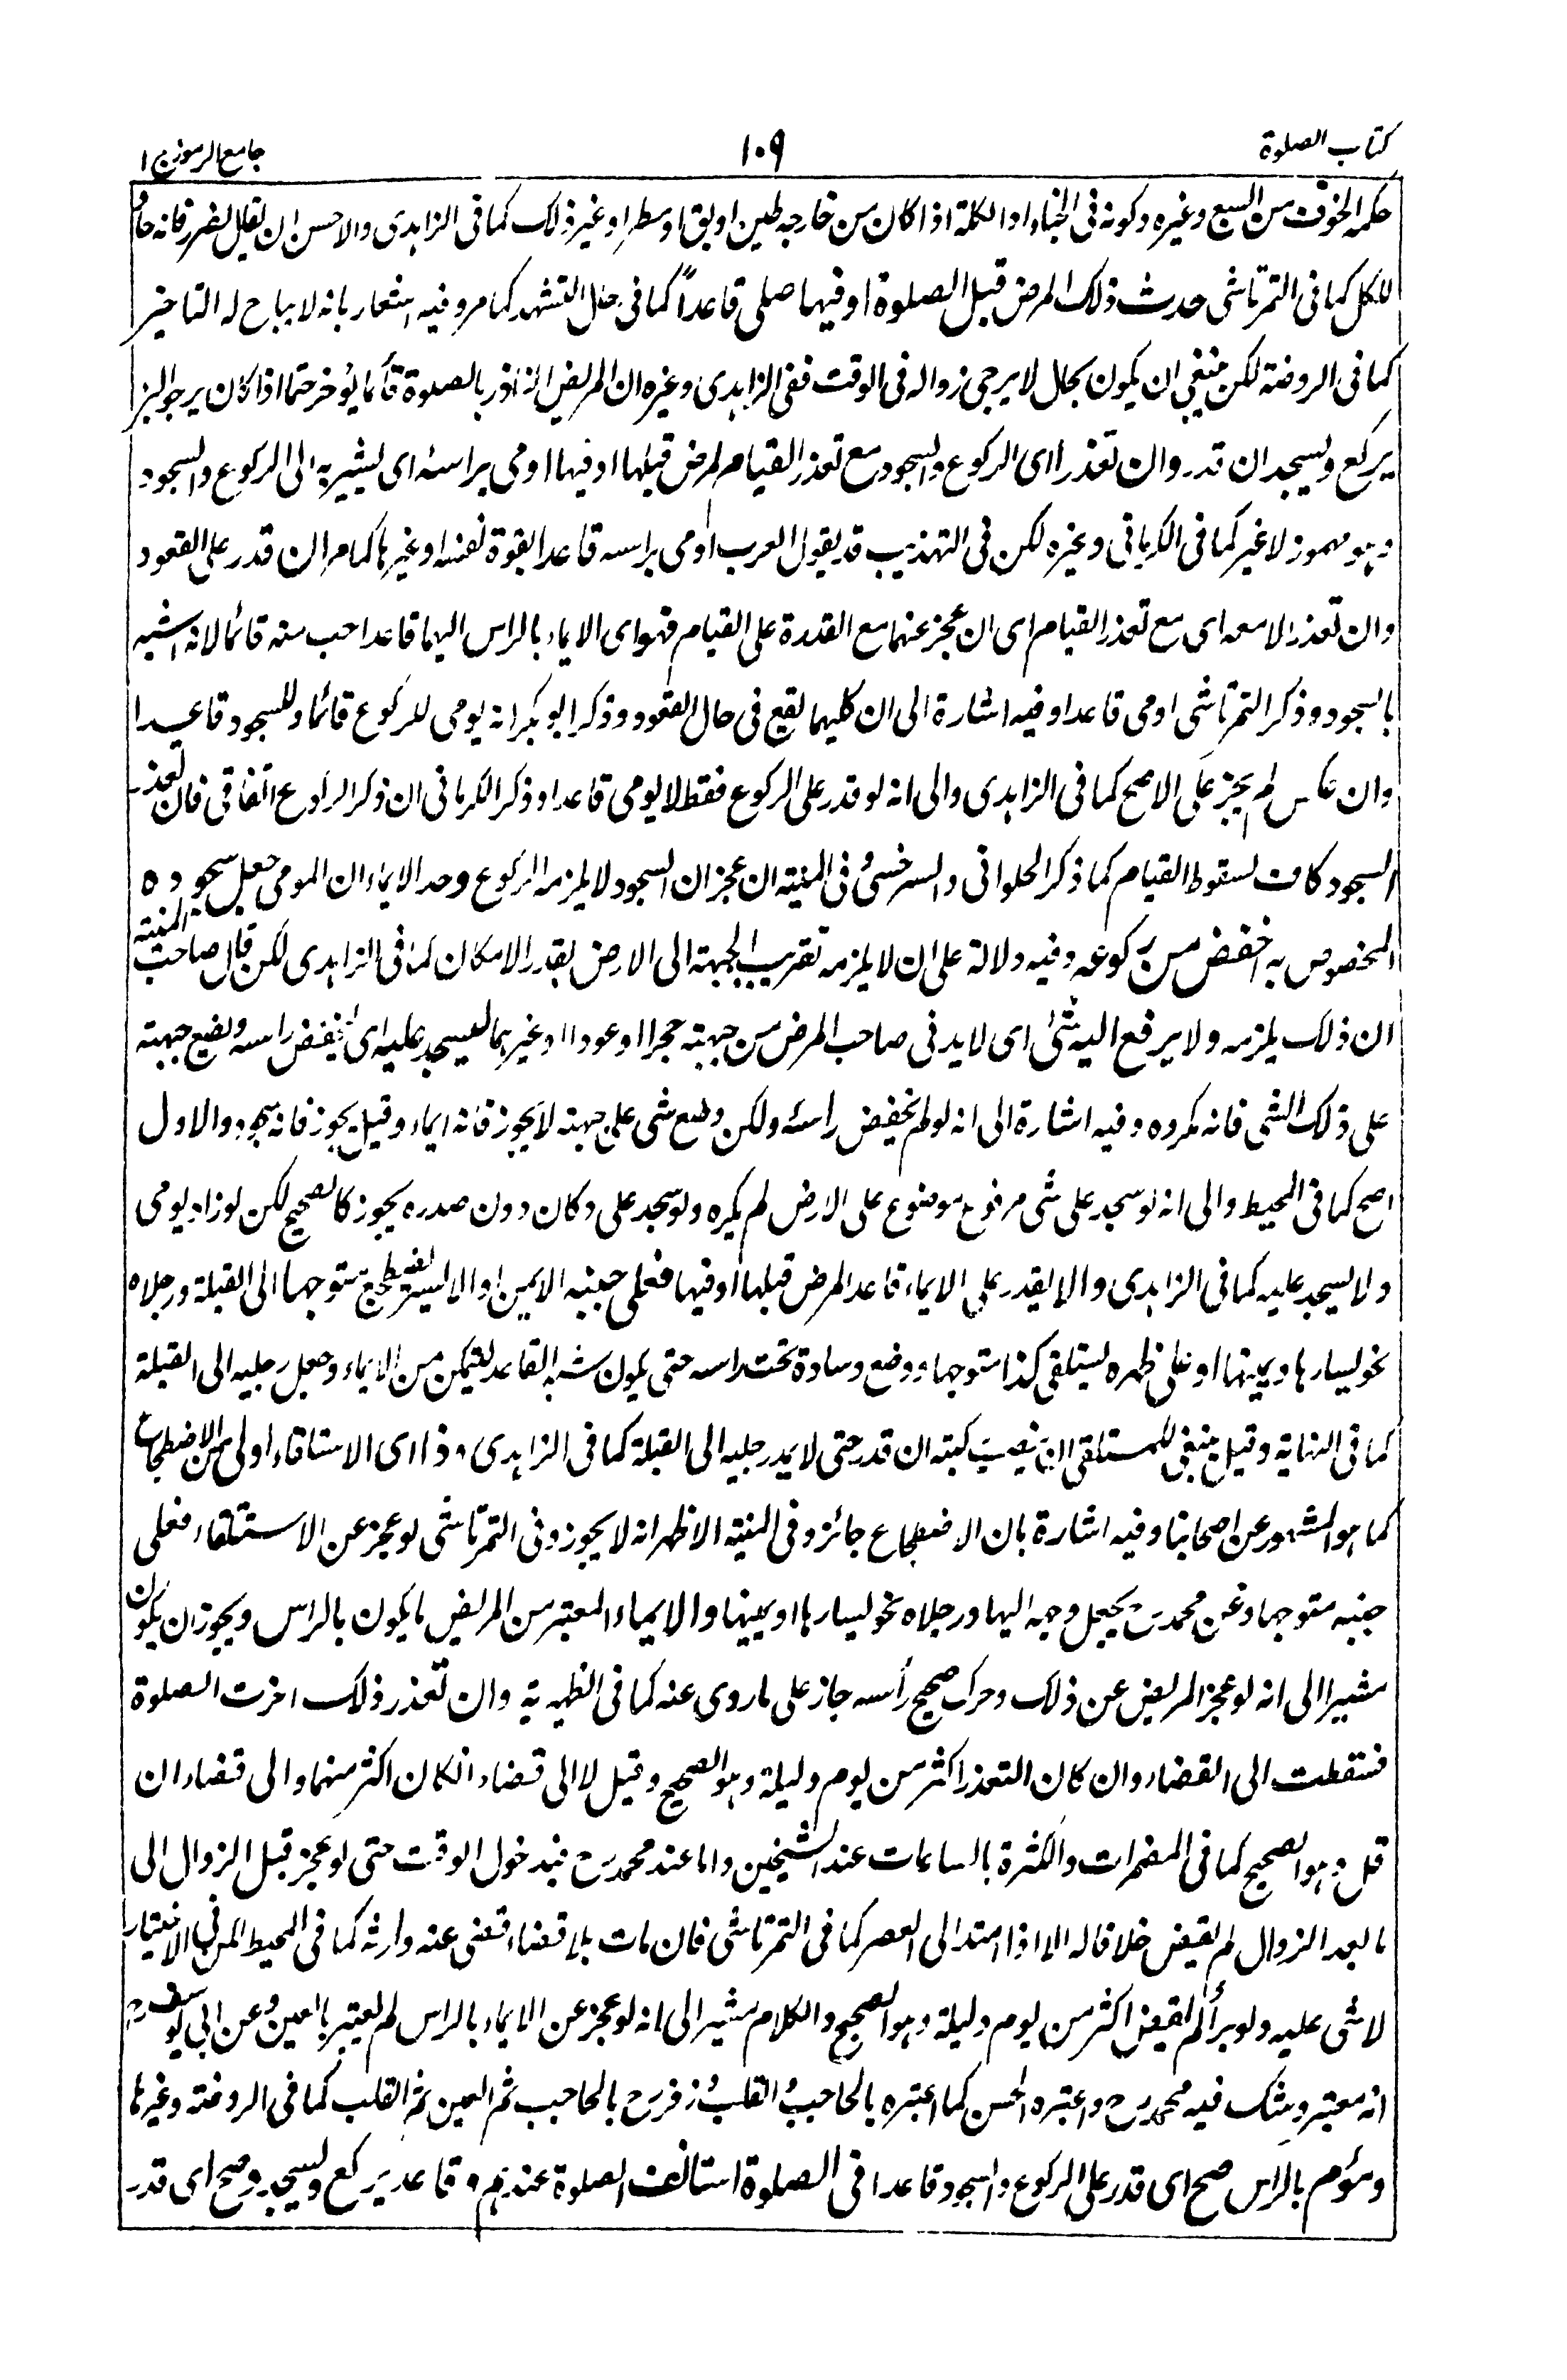 كتاب الصلوة
١٠٩
جامع الرموز ج ١
حكمه الخوف من السبع وغيره وكونه فى الخباء او الكلة اذا كان من خارجه طين او بق او مطر او غير ذلك كما فى الزاهدى والاحسن ان يقال لضرر فانه
للكل كما فى التمرتاشى حدث ذلك المرض قبل الصلوة او فيها صلى قاعداً كما فى حال التشهد كما مر وفيه اشعار بانه لا يباح له التاخير
كما فى الروضة لكن ينبغى ان يكون بحال لا يرجى زواله فى الوقت ففى الزاهدى وغيره ان المريض بالصلوة قائما يؤخر حتما اذا كان يرجو البرء
يركع ويسجد ان قدر وان تعذرا اى الركوع والسجود مع تعذر القيام لمرض قبلها او فيها اومى براسه اى يشير به الى الركوع والسجود
وهو مهموز لا غير كما فى الكرمانى وغيره لكن فى التهذيب قد يقول العرب اومى براسه قاعدا بقوة نفسه او غيرها كما مر ان قدر على القعود
وان تعذر الا معه اى مع تعذر القيام اى ان عجز عنهما مع القدرة على القيام فهو اى الايماء بالراس اليهما قاعدا احب منه قائما لانه اشبه
بالسجود وذكر التمرتاشى اومى قاعدا وفيه اشارة الى ان كليهما يقع فى حال القعود وذكر ابو بكر انه يومى للركوع قائما وللسجود قاعدا
وان عكس لم يجز على الاصح كما فى الزاهدى والى انه لو قدر على الركوع فقط لا يومى قاعدا وذكر الكرمانى ان ذكر الركوع اتفاقى فان تعذر
السجود كاف لسقوط القيام كما ذكر الحلوانى والسرخسى وفى المنية ان عجز ان السجود لا يلزمه الركوع وحد الايماء ان المومى جعل سجوده
المخصوص به اخفض من ركوعه وفيه دلالة على ان لا يلزمه تقريب الجبهة الى الارض بقدر الامكان كما فى الزاهدى لكن قال صاحب المنية
ان ذلك يلزمه ولا يرفع اليه شئ اى لا يدنى صاحب المرض من جبهته حجرا او عودا او غيرهما ليسجد عليه اى يخفض راسه ويضع جبهته
على ذلك الشئ فانه مكروه وفيه اشارة الى انه لو لم يخفض راسه ولكن وضع شئ على جبهته لا يجوز فانه ايماء وقيل يجوز فانه سجود والاول
اصح كما فى المحيط والى انه لو سجد على شئ مرفوع موضوع على الارض لم يكره ولو سجد على دكان دون صدره يجوز كالصحيح لكن لو زاد يومى
ولا يسجد عليه كما فى الزاهدى والا يقدر على الايماء قاعدا لمرض قبلها او فيها فعلى جنبه الايمن او الايسر يضطجع متوجها الى القبلة ورجلاه
نحو يسارها ويمينها او على ظهره يستلقى كذا متوجها ووضع وسادة تحت راسه حتى يكون شبه القاعد ليتمكن من الايماء وجعل رجليه الى القبلة
كما فى النهاية وقيل ينبغى للمستلقى ان ينصب ركبتيه ان قدر حتى لا يمد رجليه الى القبلة كما فى الزاهدى وذا اى الاستلقاء اولى من الاضطجاع
كما هو المشهور عن اصحابنا وفيه اشارة بان الاضطجاع جائز وفى المنية الاظهر انه لا يجوز وفى التمرتاشى لو عجز عن الاستلقاء فعلى
جنبه متوجها وعن محمد رح يجعل وجهه اليها ورجلاه نحو يسارها او يمينها والايماء المعتبر من المريض ما يكون بالراس ويجوز ان يكون
مشيرا الى انه لو عجز المريض عن ذلك وحرك صحيح رأسه جاز على ما روى عنه كما فى الظهيرية وان تعذر ذلك اخرت الصلوة
فتنقطت الى القضاء وان كان التعذر اكثر من يوم وليلة وهو الصحيح وقيل لا الى قضاء ان كان اكثر منهما والى قضاء ان
قل وهو الصحيح كما فى المضمرات والكثرة بالساعات عند الشيخين واما عند محمد رح فبدخول الوقت حتى لو عجز قبل الزوال الى
ما بعد الزوال لم يقض خلافا له الا اذا امتد الى العصر كما فى التمرتاشى فان مات بلا قضاء قضى عنه وارثه كما فى المحيط لكن فى الاختيار
لا شئ عليه ولو برأ لم يقض اكثر من يوم وليلة وهو الصحيح والكلام مشير الى انه لو عجز عن الايماء بالراس لم يعتبر بالعين وعن ابى يوسف رح
انه معتبر وشك فيه محمد رح واعتبره الحسن كما اعتبره بالحاجب والقلب وزفر رح بالحاجب ثم العين ثم القلب كما فى الروضة وغيرها
ومؤم بالراس صح اى قدر على الركوع والسجود قاعدا فى الصلوة استانف الصلوة عندهم وقاعد يركع ويسجد وصح اى قدر